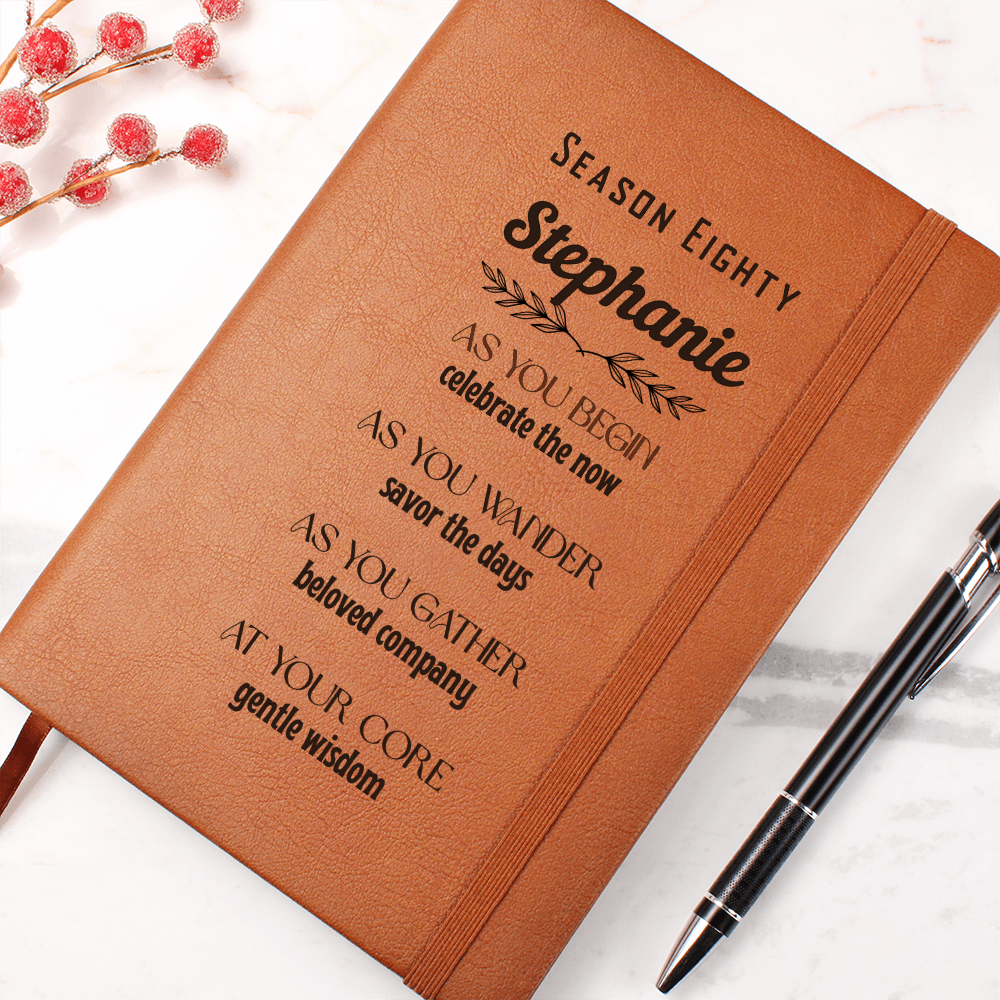 Season Eighty
Stephanie
AS YOU BEGIN
celebrate the now
AS YOU WANDER
savor the days
AS YOU GATHER
beloved company
AT YOUR CORE
gentle wisdom